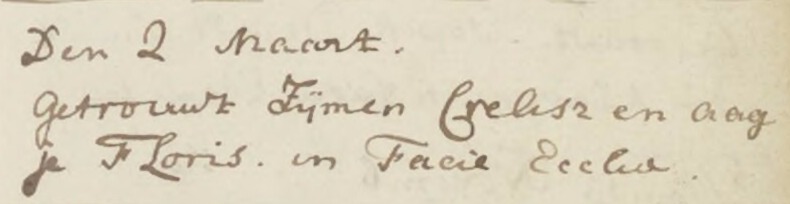 Den 2 Maart.
getrouwt Zÿmen Crelisz en aag
je Floris. in Facie Ecclae.